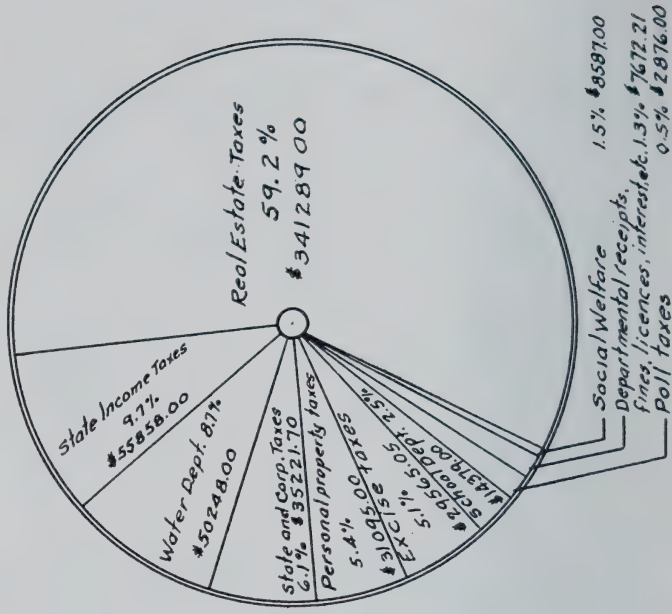 Real Estate Taxes
59.2%
$341289.00
State Income Taxes
9.7%
$55858.00
Water Dept. 8.7%
$50248.00
State and Corp. Taxes
6.1% $35221.70
Personal property taxes
5.4%
$31095.00
Excise taxes
5.1%
$29565.05
School Dept. 2.5%
$14379.00
Social Welfare 1.5% $8587.00
Departmental receipts,
fines, licences, interest, etc. 1.3% $7672.21
Poll taxes 0.5% $2876.00